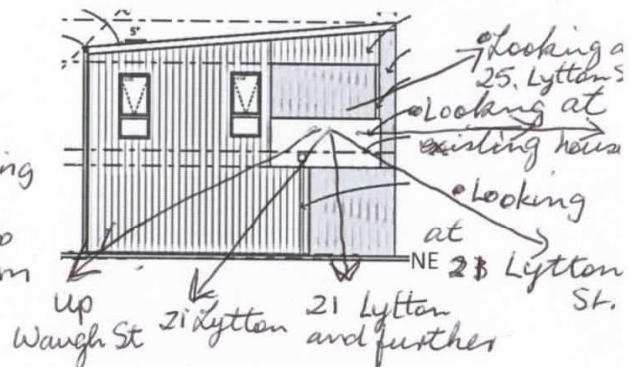 5°
• Looking a
25. Lytton S
• Looking at
existing hous
• Looking
at
NE 21 Lytton
St.
ing
o
m
up
Waugh St
21 Lytton
21 Lytton
and further